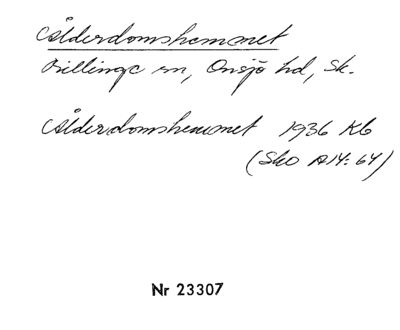 Ålderdomshemmet
Billinge sn, Onsjö hd, Sk.
Ålderdomshemmet 1936 Kb
(Sko A14:64)
Nr 23307